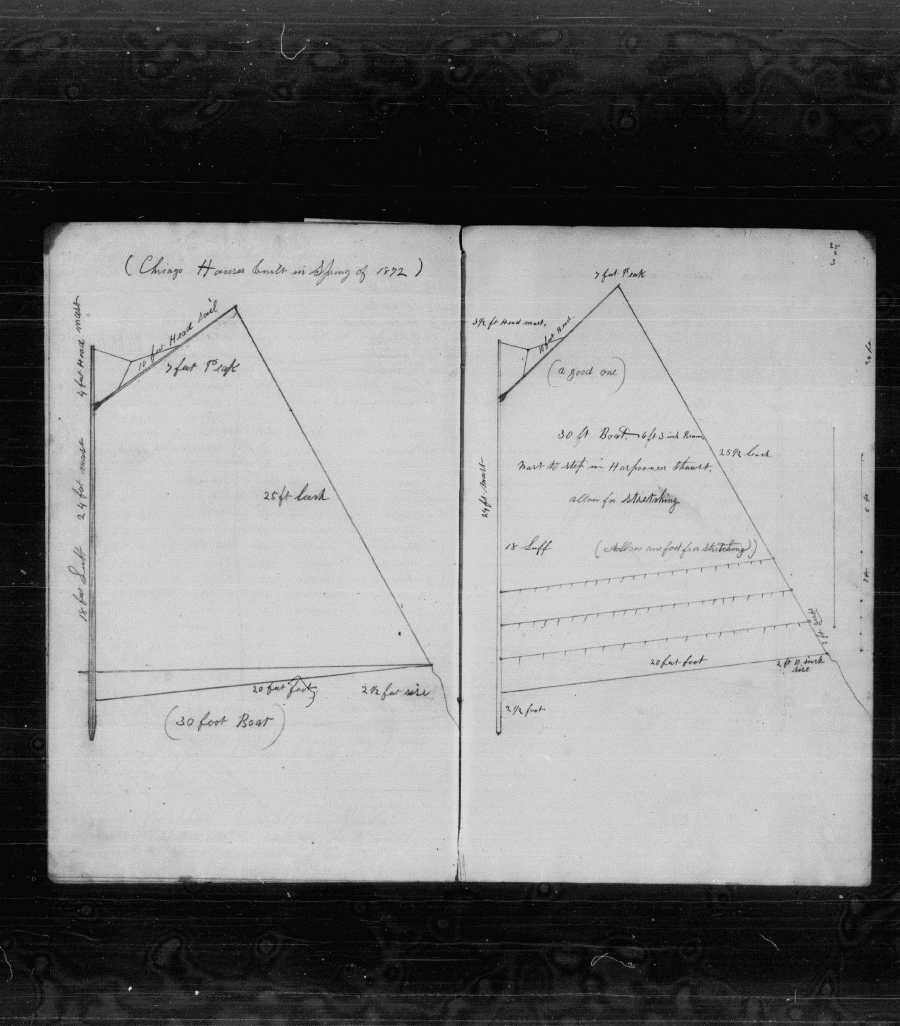 ( built in Spring of 1872 )
4 feet Head mast
10 feet Head sail
7 feet Peak
24 feet mast
25 ft Leech
18 feet Luff
20 feet foot
2 1/2 feet rise
(30 foot Boat)
25
2
3
7 feet Peak
3 1/2 ft Head mast.
10 feet Head.
(a good one)
30 ft Boat. 6 ft 3 inch Beam
mast to step in Harpooners thwart.
25 1/2 leech
24 ft mast
allow for stretching
18 Luff
(Allow one foot for stretching)
20 feet foot
2 ft 10 inch
rise
2 1/2 feet